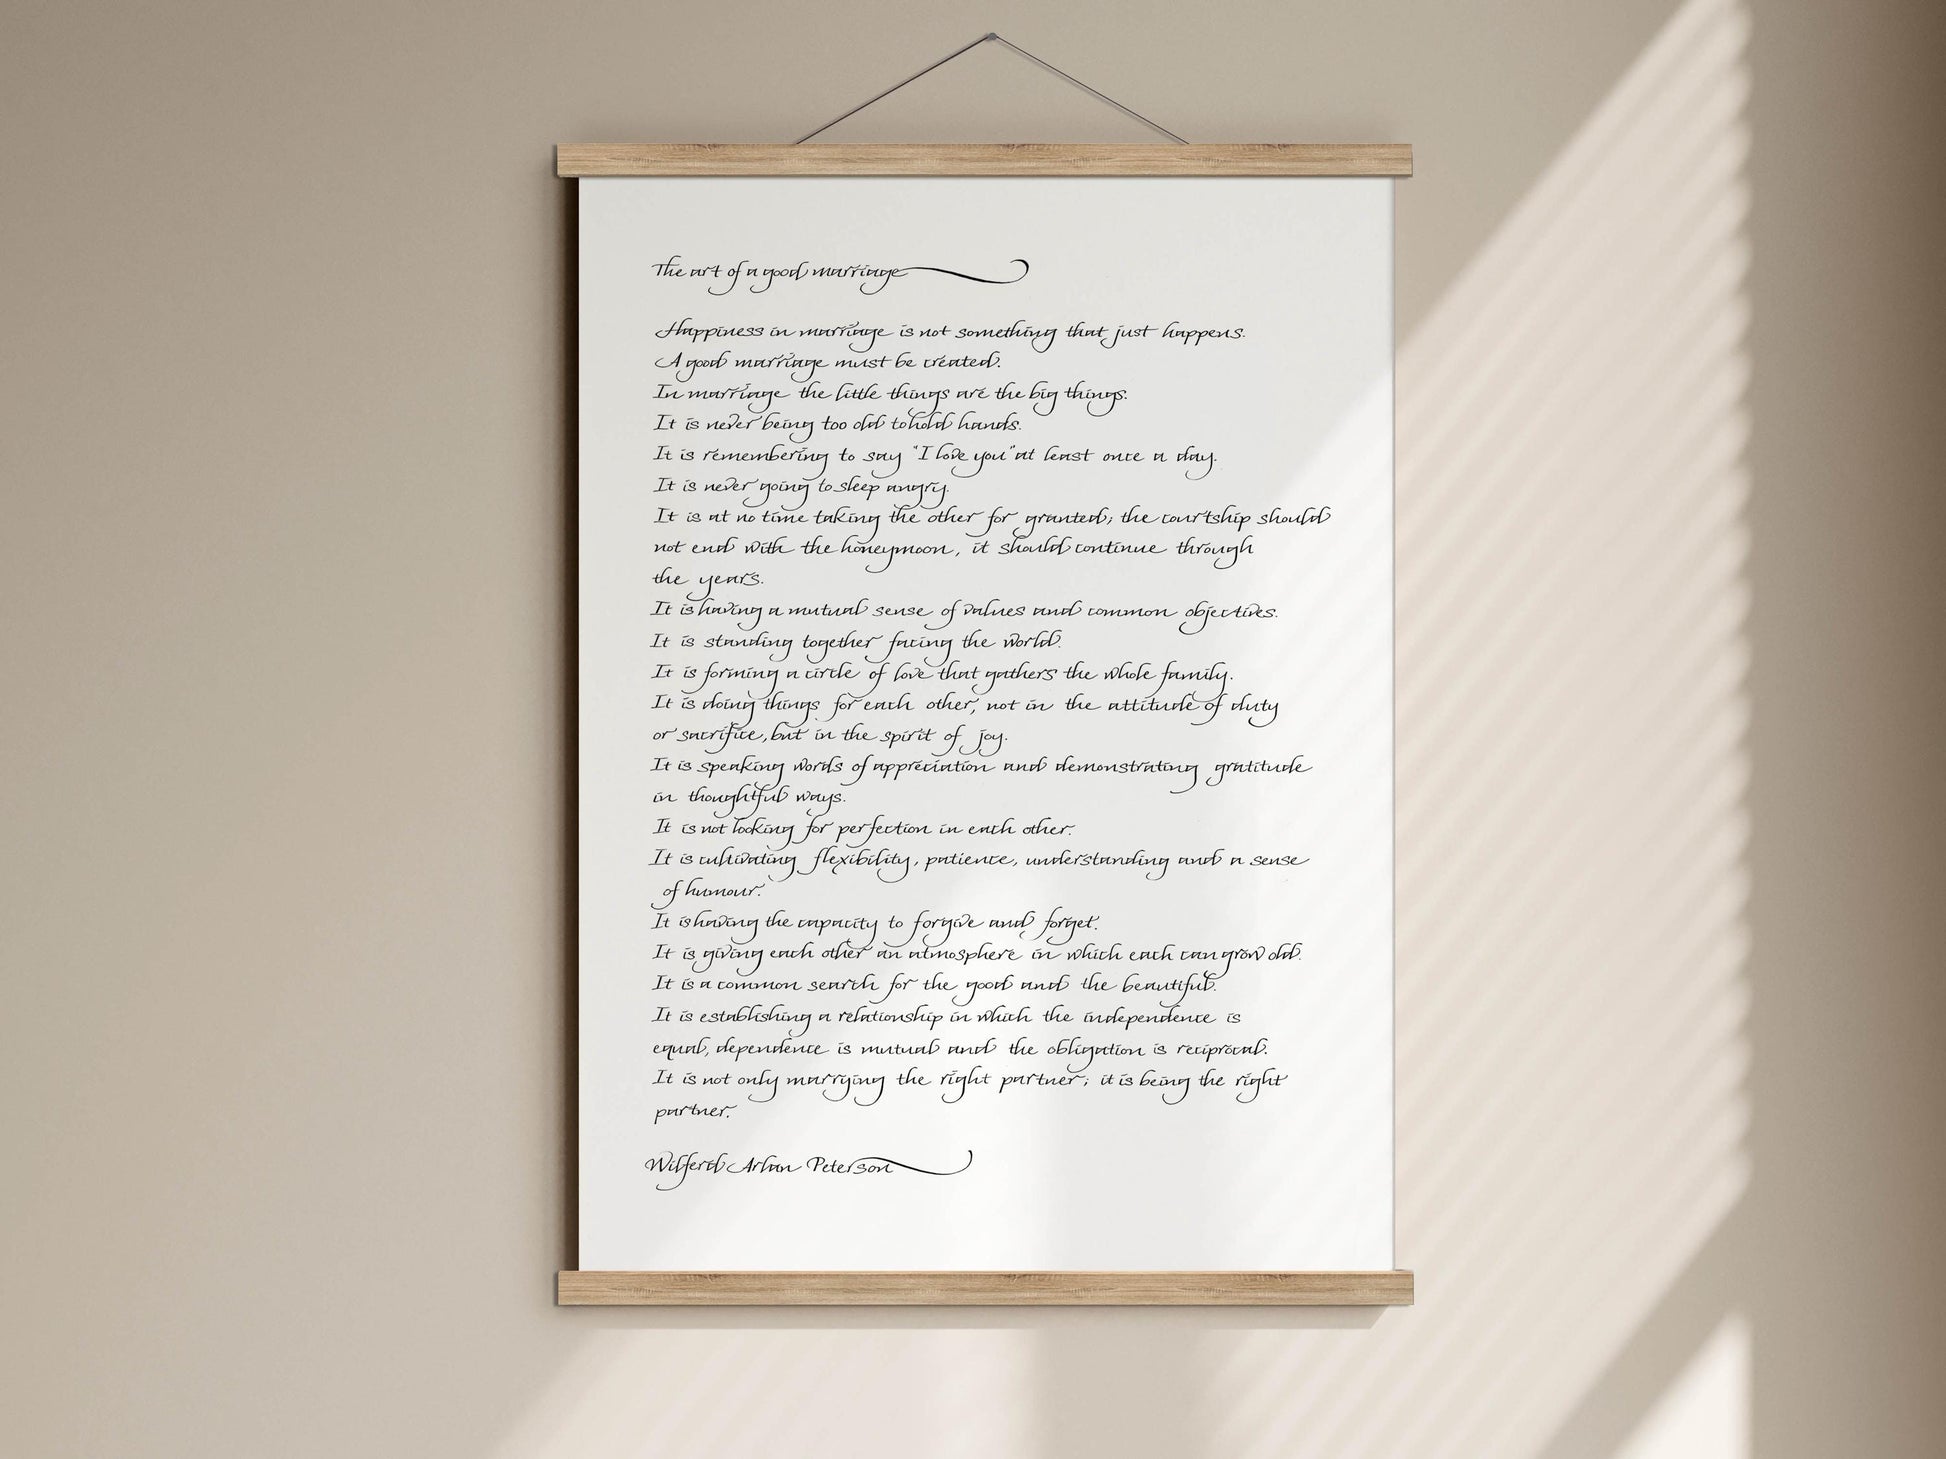 The art of a good marriage
Happiness in marriage is not something that just happens.
A good marriage must be created.
In marriage the little things are the big things.
It is never being too old to hold hands.
It is remembering to say "I love you" at least once a day.
It is never going to sleep angry.
It is at no time taking the other for granted; the courtship should
not end with the honeymoon, it should continue through
the years.
It is having a mutual sense of values and common objectives.
It is standing together facing the world.
It is forming a circle of love that gathers the whole family.
It is doing things for each other, not in the attitude of duty
or sacrifice, but in the spirit of joy.
It is speaking words of appreciation and demonstrating gratitude
in thoughtful ways.
It is not looking for perfection in each other.
It is cultivating flexibility, patience, understanding and a sense
of humour.
It is having the capacity to forgive and forget.
It is giving each other an atmosphere in which each can grow old.
It is a common search for the good and the beautiful.
It is establishing a relationship in which the independence is
equal, dependence is mutual and the obligation is reciprocal.
It is not only marrying the right partner; it is being the right
partner.
Wilferd Arlan Peterson